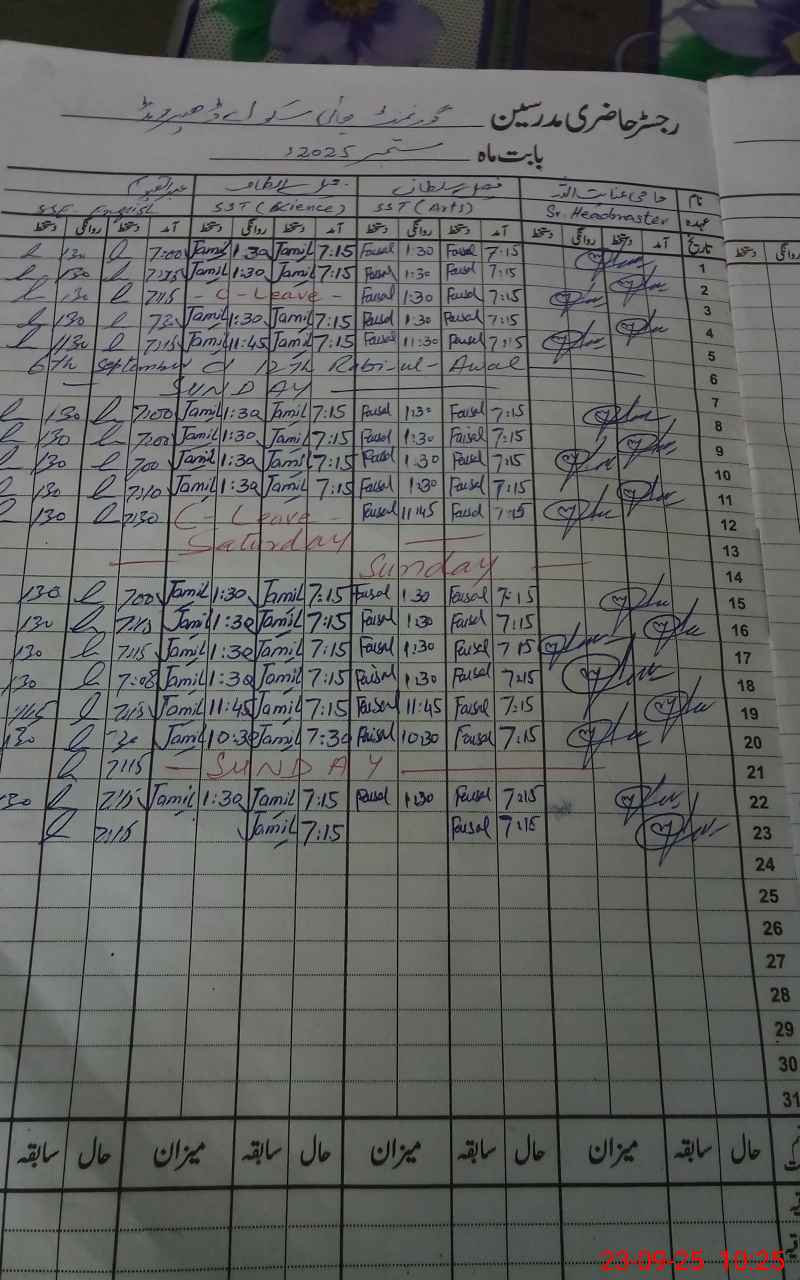 رجسٹر حاضری مدرسین گورنمنٹ ہائی سکول
بابت ماہ ستمبر 2025ء
نام
عہدہ Sr. Headmaster SST (Arts) SST (Science) SST English
تاریخ آمد دستخط روانگی دستخط آمد دستخط روانگی دستخط آمد دستخط روانگی دستخط آمد دستخط روانگی دستخط
1 7:15 Faisal 1:30 Faisal 7:15 Jamil 1:30 Jamil 7:00 130
2 7:15 Faisal 1:30 Faisal 7:15 Jamil 1:30 Jamil 7:15 130
3 7:15 Faisal 1:30 Faisal - C-Leave - 7:15 130
4 7:15 Faisal 1:30 Faisal 7:15 Jamil 1:30 Jamil 130
5 7:15 Faisal 11:30 Faisal 7:15 Jamil 11:45 Jamil 7:15 1130
6 6th September 12th Rabi-ul-Awal
7 SUNDAY
8 7:15 Faisal 1:30 Faisal 7:15 Jamil 1:30 Jamil 7:00 130
9 7:15 Faisal 1:30 Faisal 7:15 Jamil 1:30 Jamil 7:00 130
10 7:15 Faisal 1:30 Faisal 7:15 Jamil 1:30 Jamil 700 130
11 7:15 Faisal 1:30 Faisal 7:15 Jamil 1:30 Jamil 7:10 130
12 7:15 Faisal 11:45 Faisal C-Leave - 7:30 130
13 Saturday
14 Sunday
15 7:15 Faisal 1:30 Faisal 7:15 Jamil 1:30 Jamil 700 130
16 7:15 Faisal 1:30 Faisal 7:15 Jamil 1:30 Jamil 7:15 130
17 7:15 Faisal 1:30 Faisal 7:15 Jamil 1:30 Jamil 7:15 130
18 7:15 Faisal 1:30 Faisal 7:15 Jamil 1:30 Jamil 7:08 130
19 7:15 Faisal 11:45 Faisal 7:15 Jamil 11:45 Jamil 7:15 1145
20 7:15 Faisal 10:30 Faisal 7:30 Jamil 10:30 Jamil
21 - SUNDAY - 7:15
22 7:15 Faisal 1:30 Faisal 7:15 Jamil 1:30 Jamil 7:15 130
23 7:15 Faisal 7:15 Jamil 7:15
24
25
26
27
28
29
30
31
حال سابقہ میزان حال سابقہ میزان حال سابقہ میزان حال سابقہ
23-09-25 10:25